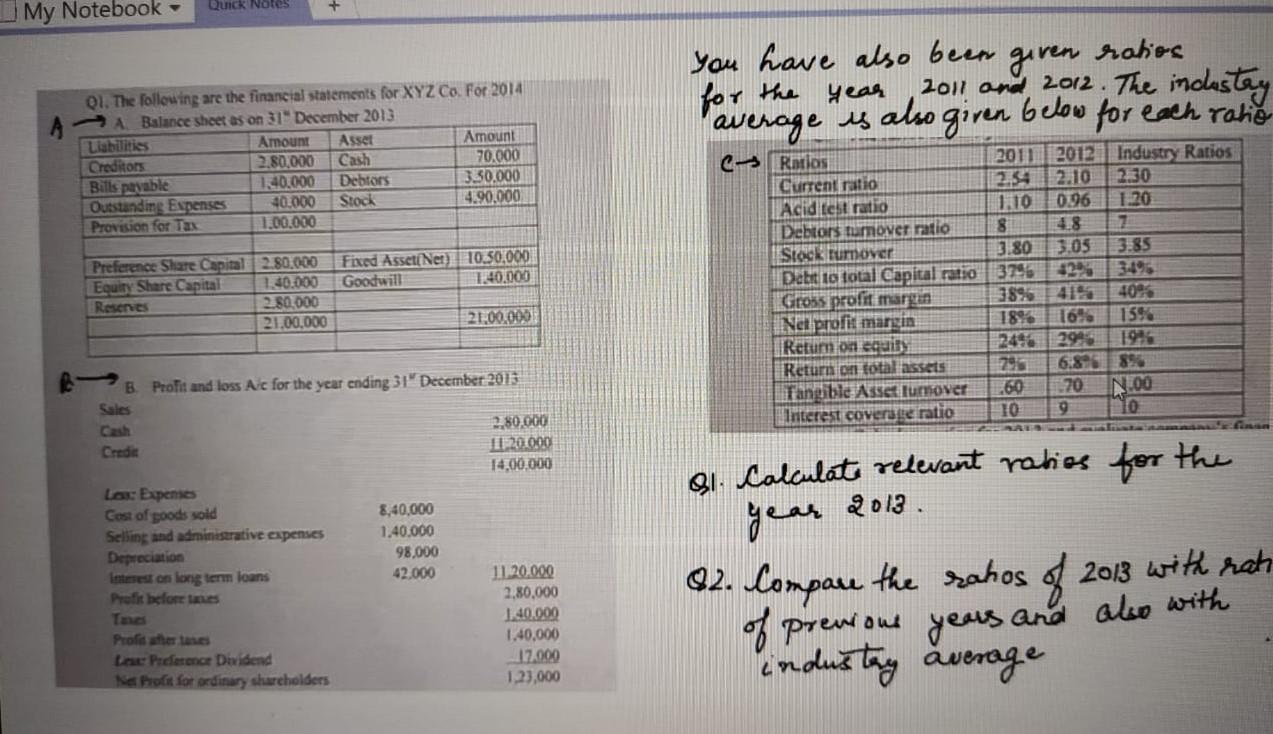 My Notebook
Quick Notes +
Q1. The following are the financial statements for XYZ Co. For 2014
A → A. Balance sheet as on 31st December 2013
Liabilities Amount Asset Amount
Creditors 2,80,000 Cash 70,000
Bills payable 1,40,000 Debtors 3,50,000
Outstanding Expenses 40,000 Stock 4,90,000
Provision for Tax 1,00,000
Preference Share Capital 2,80,000 Fixed Asset(Net) 10,50,000
Equity Share Capital 1,40,000 Goodwill 1,40,000
Reserves 2,80,000
21,00,000 21,00,000
B → B. Profit and loss A/c for the year ending 31st December 2013
Sales
Cash 2,80,000
Credit 11,20,000
14,00,000
Less: Expenses
Cost of goods sold 8,40,000
Selling and administrative expenses 1,40,000
Depreciation 98,000
Interest on long term loans 42,000 11,20,000
Profit before taxes 2,80,000
Taxes 1,40,000
Profit after taxes 1,40,000
Less: Preference Dividend 17,000
Net Profit for ordinary shareholders 1,23,000
You have also been given ratios
for the year 2011 and 2012. The industay
average is also given below for each ratio
C → Ratios 2011 2012 Industry Ratios
Current ratio 2.54 2.10 2.30
Acid test ratio 1.10 0.96 1.20
Debtors turnover ratio 8 4.8 7
Stock turnover 3.80 3.05 3.85
Debt to total Capital ratio 37% 42% 34%
Gross profit margin 38% 41% 40%
Net profit margin 18% 16% 15%
Return on equity 24% 29% 19%
Return on total assets 7% 6.8% 8%
Tangible Asset turnover .60 .70 1.00
Interest coverage ratio 10 9 10
Q1. Calculate relevant ratios for the
year 2013.
Q2. Compare the ratios of 2013 with rati
of previous years and also with
industay average